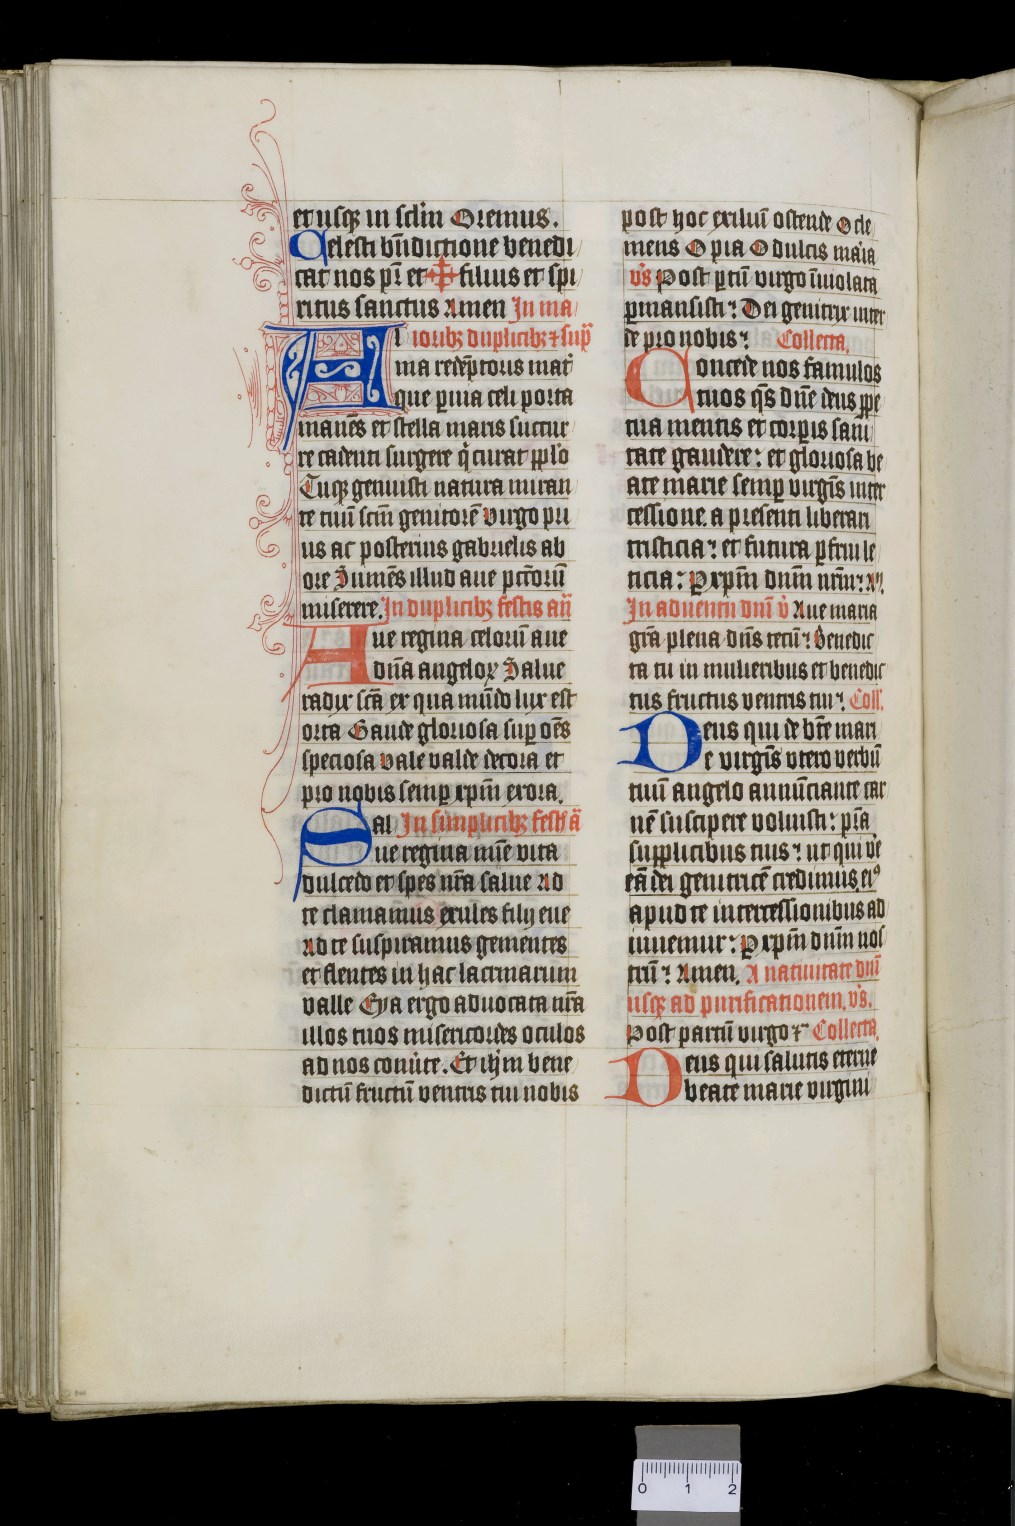 et usq̄ in sclm̄ Oremus.
Celesti bn̄dictione benedi
cat nos pr̄ et ✠ filius et spi
ritus sanctus Amen In ma
Al ioribꝫ duplicibꝫ ⁊ sup̄
ma redēptoris mat̄
que ꝑuia celi porta
manēs et stella maris succur
re cadenti surgere q̇ curat pplo
Tuqꝫ genuisti natura miran
te tuū scm̄ genitorē Virgo pri
us ac posterius gabrielis ab
ore Sumēs illud aue pctorū
miserere. In duplicibꝫ festis an̄
Aue regina celorū aue
dn̄a angeloꝝ Salue
radix scā ex qua mūdo lux est
orta Gaude gloriosa suꝑ oēs
speciosa Vale valde decora et
pro nobis semꝑ xpm̄ exora.
Sal In simplicibꝫ fest̄ ā
ue regina mīe vita
dulcedo et spes nr̄a salue Ad
te clamamus exules filij eue
Ad te suspiramus gementes
et flentes in hac lacrimarum
valle Eya ergo aduocata nr̄a
illos tuos misericordes oculos
ad nos conūte. Et ihm̄ bene
dictū fructū ventris tui nobis
post hoc exiliū ostende O cle
mens O pia O dulcis maīa
v̄s Post ꝑtū virgo īuiolata
ꝑmansisti ⁊ Dei genitrix inter
de pro nobis ⁊ Collecta.
Concede nos famulos
tuos qs̄ dn̄e deus ꝑpe
tua mentis et corꝑis sani
tate gaudere: et gloriosa be
ate marie semꝑ virgīs inter
cessione. a presenti liberari
tristicia ⁊ et futura ꝑfrui le
ticia: P xpm̄ dnm̄ nrm̄: A.
In aduentu dnī v̄ Aue maria
grā plena dn̄s tecū ⁊ Benedic
ta tu in mulieribus et benedic
tus fructus ventris tui ⁊ Coll.
Deus qui de bt̄e mari
e virgīs vtero verbū
tuū angelo annūciante car
nē suscipere voluisti: pr̄a
supplicibus tuis ⁊ ut qui ve
eā dei genitricē credimus, eiꝰ
apud te intercessionibus ad
iuuemur: P xpm̄ dnm̄ nos
trū ⁊ Amen. A natiuitate dnī
usqꝫ ad purificationem. v̄s.
Post partū virgo ⁊ Collecta.
Deus qui salutis eterne
beate marie virgini
0 1 2